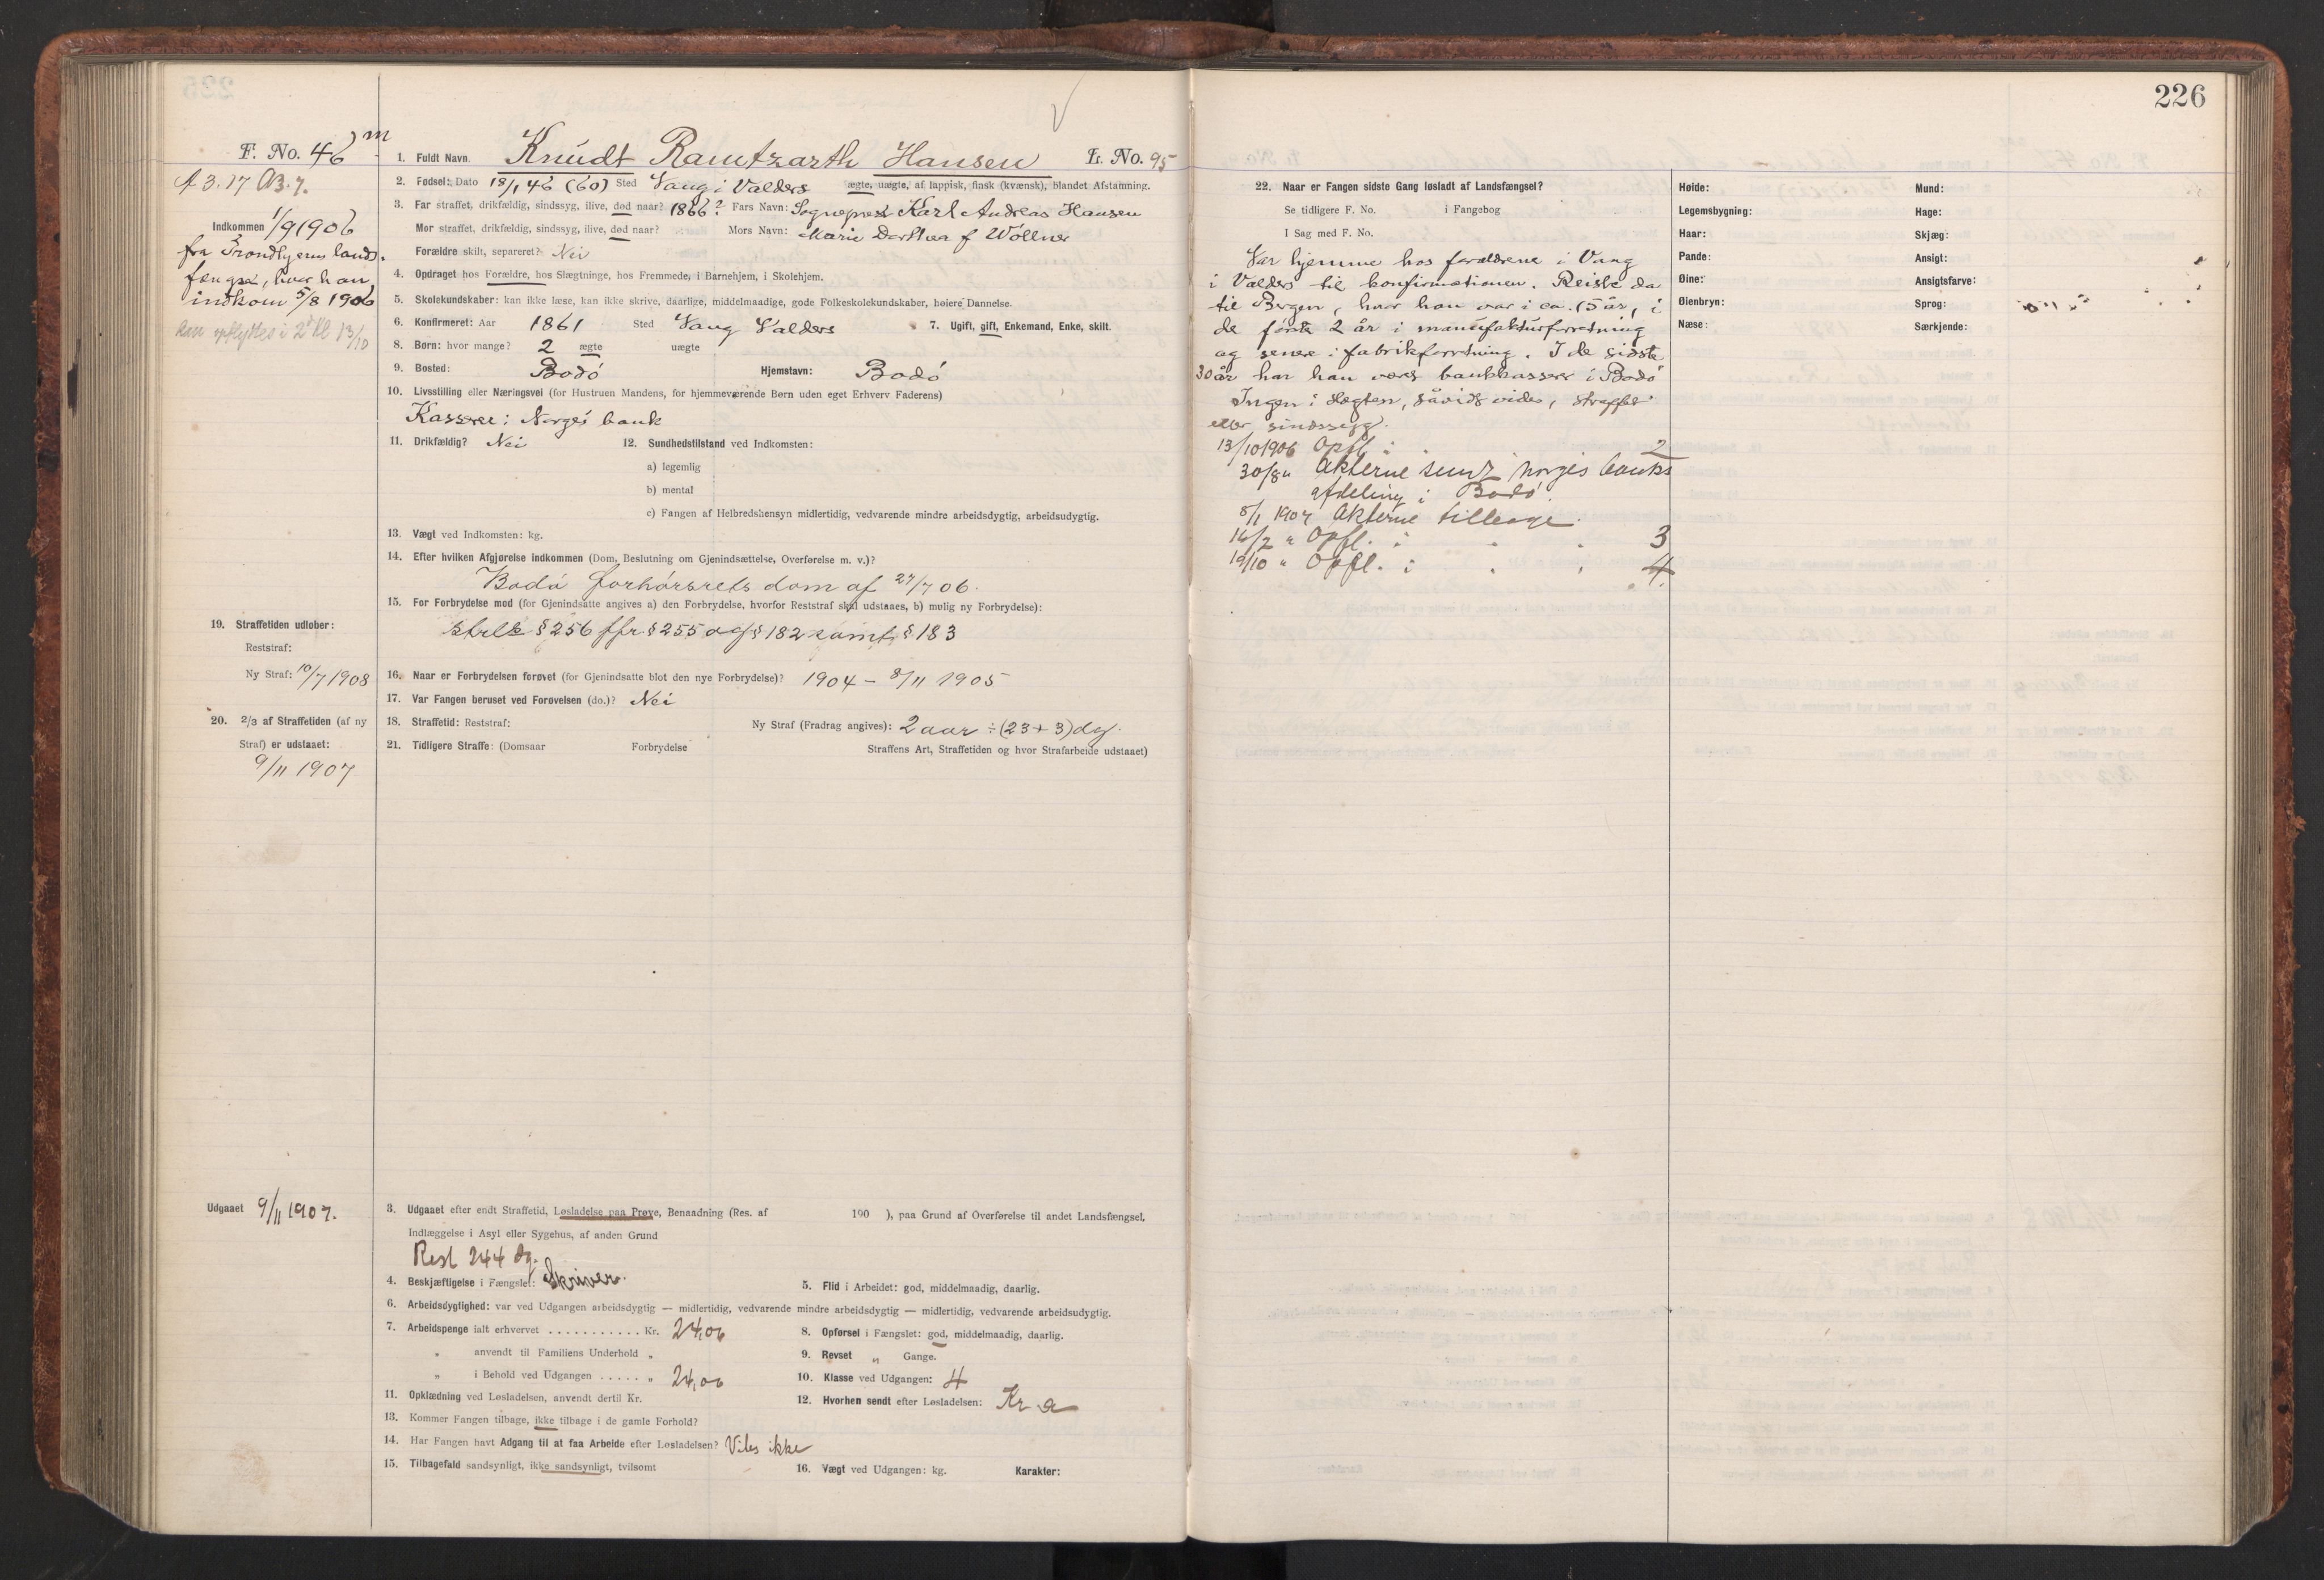 226
F. No. 46
m
A 3. 17 B3. 7.
Indkommen 1/9 1906
fra Trondhjems lands-
fængsel, hvor han
indkom 5/8 1906
kan opflyttes i 2d Kl 13/10
1. Fuldt Navn. Knudt Ramtzarth Hansen L. No. 95
2. Fødsel: Dato 18/1 46 (60) Sted Vang i Valders ægte, uægte, af lappisk, finsk (kvænsk), blandet Afstamning.
3. Far straffet, drikfældig, sindssyg, ilive, død naar? 1866? Fars Navn: Sogneprest Karl Andreas Hansen
Mor straffet, drikfældig, sindssyg, ilive, død naar? Mors Navn: Marie Dorthea f Wöllner
Forældre skilt, separeret? Nei
4. Opdraget hos Forældre, hos Slægtninge, hos Fremmede, i Barnehjem, i Skolehjem.
5. Skolekundskaber: kan ikke læse, kan ikke skrive, daarlige, middelmaadige, gode Folkeskolekundskaber, høiere Dannelse.
6. Konfirmeret: Aar 1861 Sted Vang Valders 7. Ugift, gift, Enkemand, Enke, skilt.
8. Børn: hvor mange? 2 ægte uægte
9. Bosted: Bodó Hjemstavn: Bodó
10. Livsstilling eller Næringsvei (for Hustruen Mandens, for hjemmeværende Børn uden eget Erhverv Faderens)
Kasserer i Norges bank
11. Drikfældig? Nei 12. Sundhedstilstand ved Indkomsten:
a) legemlig
b) mental
c) Fangen af Helbredshensyn midlertidig, vedvarende mindre arbeidsdygtig, arbeidsudygtig.
13. Vægt ved Indkomsten: kg.
14. Efter hvilken Afgjørelse indkommen (Dom, Beslutning om Gjenindsættelse, Overførelse m. v.)?
Bodó forhórsrets dom af 27/7 06.
15. For Forbrydelse mod (for Gjenindsatte angives a) den Forbrydelse, hvorfor Reststraf skal udstaaes, b) mulig ny Forbrydelse):
strls § 256 jfr. § 255 og § 182 samt § 183
19. Straffetiden udløber:
Reststraf:
Ny Straf: 10/7 1908
16. Naar er Forbrydelsen forøvet (for Gjenindsatte blot den nye Forbrydelse)? 1904 – 8/11 1905
17. Var Fangen beruset ved Forøvelsen (do.)? Nei
20. 2/3 af Straffetiden (af ny
Straf) er udstaaet:
9/11 1907
18. Straffetid: Reststraf: Ny Straf (Fradrag angives): 2 aar ÷ (23 + 3) dg.
21. Tidligere Straffe: (Domsaar Forbrydelse Straffens Art, Straffetiden og hvor Strafarbeide udstaaet)
Udgaaet 9/11 1907.
3. Udgaaet efter endt Straffetid, Løsladelse paa Prøve, Benaadning (Res. af 190 ), paa Grund af Overførelse til andet Landsfængsel,
Indlæggelse i Asyl eller Sygehus, af anden Grund
Rest 244 dg.
4. Beskjæftigelse i Fængslet: Skriver. 5. Flid i Arbeidet: god, middelmaadig, daarlig.
6. Arbeidsdygtighed: var ved Udgangen arbeidsdygtig — midlertidig, vedvarende mindre arbeidsdygtig — midlertidig, vedvarende arbeidsudygtig.
7. Arbeidspenge ialt erhvervet . . . . . . . . . . . Kr. 24,06 8. Opførsel i Fængslet: god, middelmaadig, daarlig.
„ anvendt til Familiens Underhold „ 9. Revset „ Gange.
„ i Behold ved Udgangen . . . . . „ 24,06 10. Klasse ved Udgangen: 4
11. Opklædning ved Løsladelsen, anvendt dertil Kr. 12. Hvorhen sendt efter Løsladelsen: Kr a
13. Kommer Fangen tilbage, ikke tilbage i de gamle Forhold?
14. Har Fangen havt Adgang til at faa Arbeide efter Løsladelsen? Vites ikke
15. Tilbagefald sandsynligt, ikke sandsynligt, tvilsomt 16. Vægt ved Udgangen: kg. Karakter:
22. Naar er Fangen sidste Gang løsladt af Landsfængsel?
Se tidligere F. No. i Fangebog
I Sag med F. No.
Var hjemme hos forældrene i Vang
i Valders til konfirmationen. Reiste da
til Bergen, hvor han var i ca. 15 år, i
de første 2 år i manufakturforretning
og senere i fabrikforretning. I de sidste
30 år har han været bankkasserer i Bodó
Ingen i slægten, såvidt vides, straffet
eller sindssyg.
13/10 1906 Opfl. i 2
30/8 " Akterne sendt Norges banks
afdeling i Bodó.
8/1 1907 Akterne tilbage.
16/2 " Opfl. i " " 3
19/10 " Opfl. i " " 4
Høide: Mund:
Legemsbygning: Hage:
Haar: Skjæg:
Pande: Ansigt:
Øine: Ansigtsfarve:
Øienbryn: Sprog:
Næse: Særkjende: